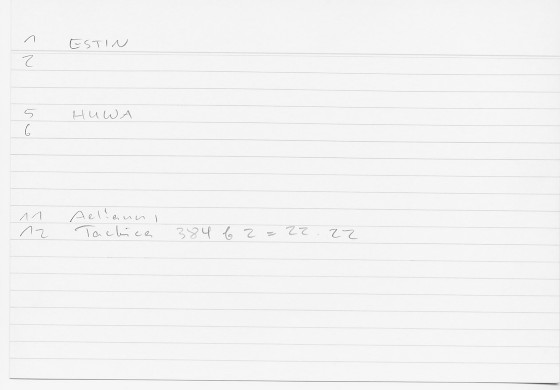 1 ESTIN
2
5 HUWA
6
11 Aelianus,
12 Tactica 384 b 2 = 22.22